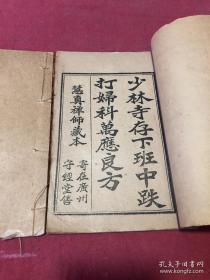 少林寺存下班中跌
打婦科萬應良方
慧真禪師藏本
寄在廣州
守經堂售
孔夫子旧书网